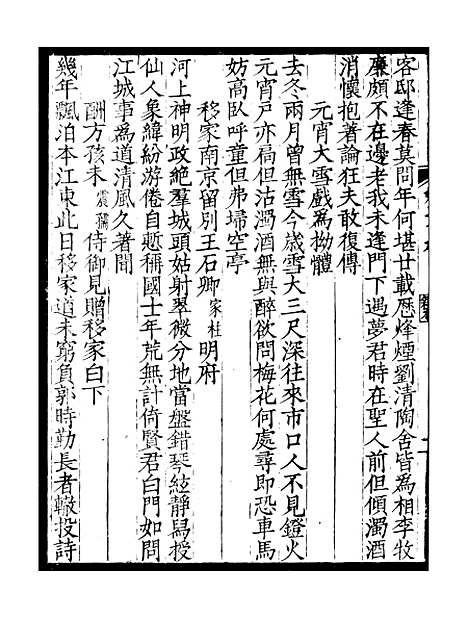 客邸逢春莫問年何堪廿載歷烽煙劉清陶舍皆為相李牧
廉頗不在邊老我未逢門下遇夢君時在聖人前但傾濁酒
消懷抱著論狂夫敢復傳
元宵大雪戲為拗體
去冬兩月曾無雪今歲雪大三尺深往來市口人不見鐙火
元宵戶亦扃但沽濁酒無與醉欲問梅花何處尋即恐車馬
妨高臥呼童但弗埽空亭
移家南京留別王石卿家柱明府
河上神明政絶羣城頭姑射翠微分地當盤錯琴絃靜舄授
仙人象緯紛游倦自題稱國士年荒無計倚賢君白門如問
江城事為道清風久著聞
酬方孩未震孺侍御見贈移家白下
幾年飄泊本江東此日移家道未窮負郭時勤長者轍投詩